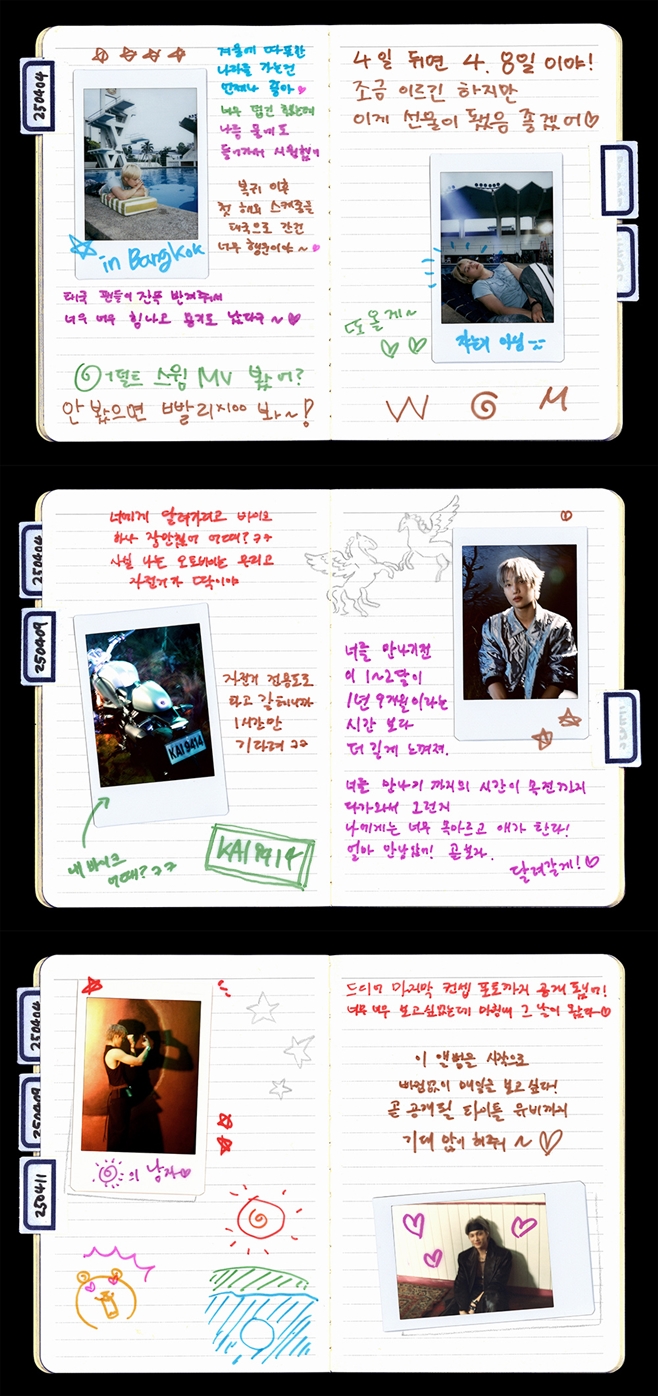 250404
겨울에 따뜻한
나라를 가는건
언제나 좋아
너무 덥긴 했는데
나름 물에도
들어가서 시원했어
복귀 이후
첫 해외 스케줄을
태국으로 간건
너무 행운이야~
in Bangkok
태국 팬들이 잔뜩 반겨줘서
너무 너무 힘나고 용기도 났다구~
어덜트 스윔 MV 봤어?
안 봤으면 빨리 봐~!
4일 뒤면 4.8일이야!
조금 이르긴 하지만
이게 선물이 됐음 좋겠어
또 올게~
자는거 아님
W M
250404
250409
너에게 달려가려고 바이크
하나 장만했어 어때? ㅋㅋ
사실 나는 오토바이는 무리고
자전거가 딱이야
자전거 전용도로
타고 갈테니까
1시간만
기다려 ㅋㅋ
KAI 9414
내 바이크
어때? ㅋㅋ
KAI 9414
너를 만나기전
이 1~2달이
1년 9개월이라는
시간 보다
더 길게 느껴져.
너를 만나기 까지의 시간이 목전까지
다가와서 그런지
나에게는 너무 목마르고 애가 탄다!
얼마 안남았어! 곧보자.
달려갈게!
250404
250409
250411
의 남자
드디어 마지막 컨셉 포토까지 공개 됐어!
너무 너무 보고싶었는데 마침내 그 날이 왔다
이 앨범을 시작으로
빠짐없이 매일을 보고 싶다!
곧 공개될 타이틀 뮤비까지
기대 많이 해줘~